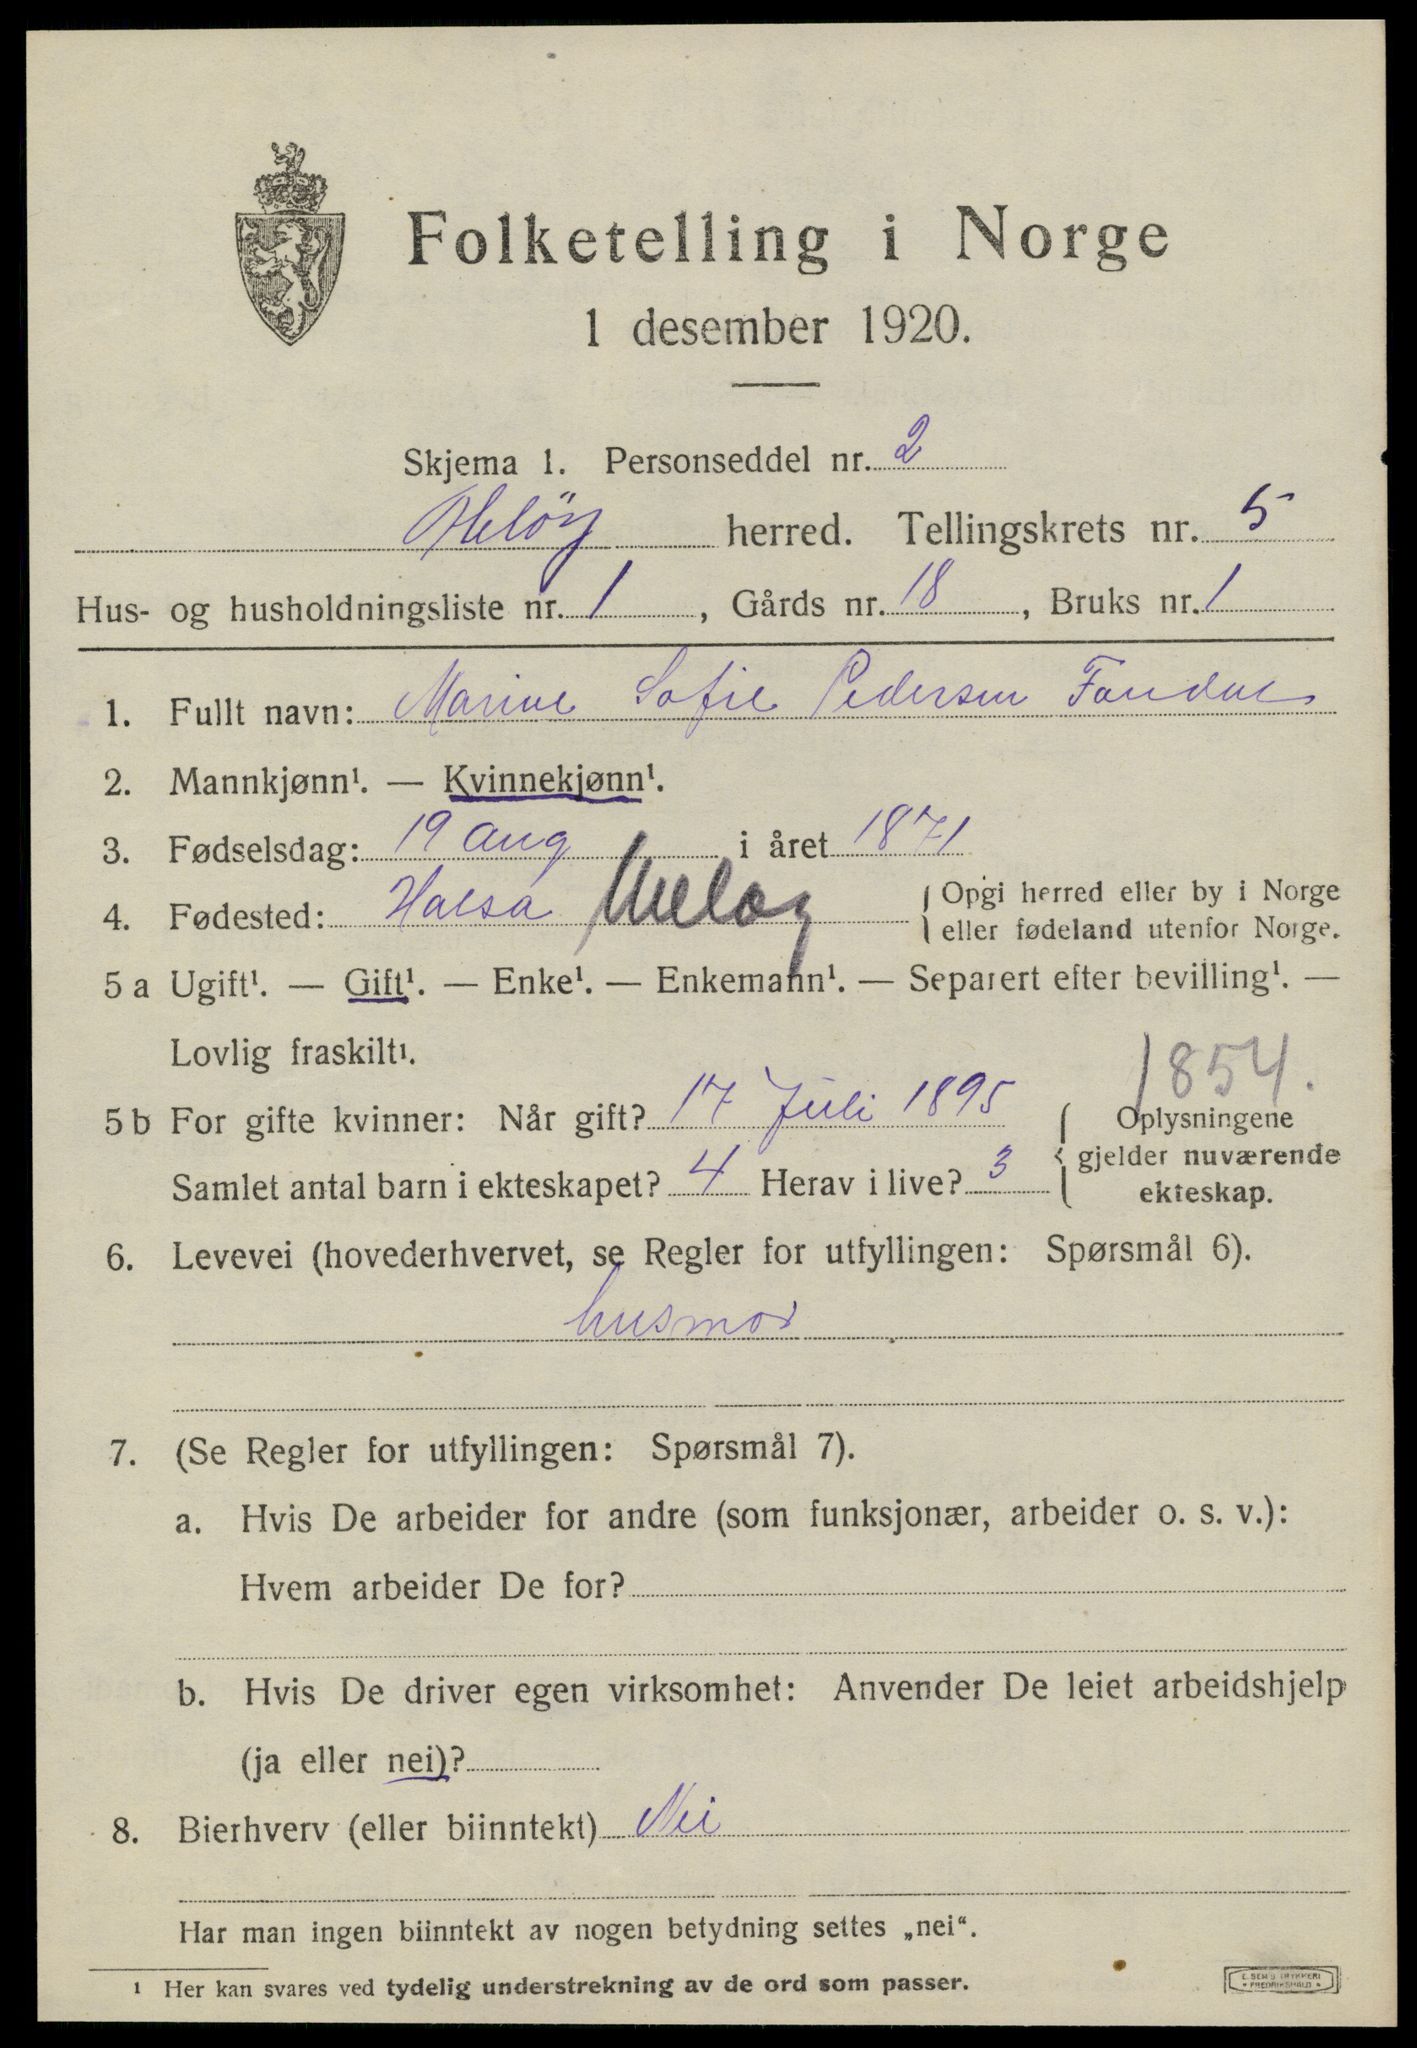 Folketelling i Norge
1 desember 1920.
Skjema 1. Personseddel nr. 2
Meløy herred. Tellingskrets nr. 5
Hus- og husholdningsliste nr. 1, Gårds nr. 18, Bruks nr. 1
1. Fullt navn: Marine Sofie Pedersen
2. Mannkjønn¹. — Kvinnekjønn¹.
3. Fødselsdag: 19 aug i året 1871
4. Fødested: Halsa Meløy
Opgi herred eller by i Norge
eller fødeland utenfor Norge.
5 a Ugift¹. — Gift¹. — Enke¹. — Enkemann¹. — Separert efter bevilling¹. —
Lovlig fraskilt¹.
1854.
5 b For gifte kvinner: Når gift? 17 Juli 1895
Samlet antal barn i ekteskapet? 4 Herav i live? 3
Oplysningene
gjelder nuværende
ekteskap.
6. Levevei (hovederhvervet, se Regler for utfyllingen: Spørsmål 6).
husmor
7. (Se Regler for utfyllingen: Spørsmål 7).
a. Hvis De arbeider for andre (som funksjonær, arbeider o. s. v.):
Hvem arbeider De for?
b. Hvis De driver egen virksomhet: Anvender De leiet arbeidshjelp
(ja eller nei)?
8. Bierhverv (eller biinntekt) Nei
Har man ingen biinntekt av nogen betydning settes „nei“.
¹ Her kan svares ved tydelig understrekning av de ord som passer.
E. SEM'S TRYKKERI
FREDRIKSHALD